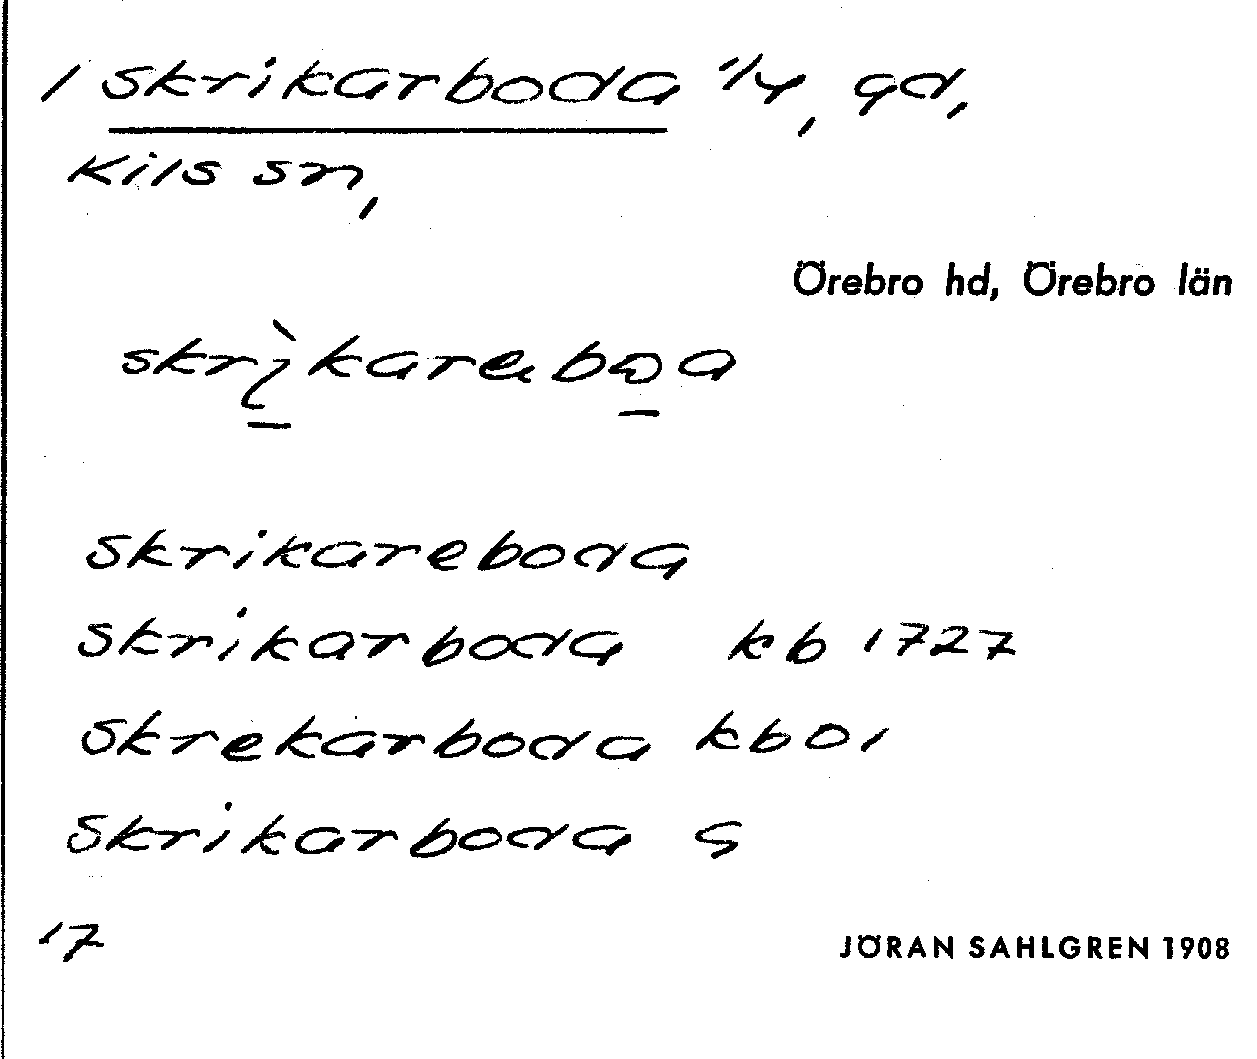 1 Skrikarboda 1/4, gd,
Kils sn,
Örebro hd, Örebro län
skrikareboda
Skrikarboda kb 1727
Skrekarboda kb 01
Skrikarboda G
17
JÖRAN SAHLGREN 1908